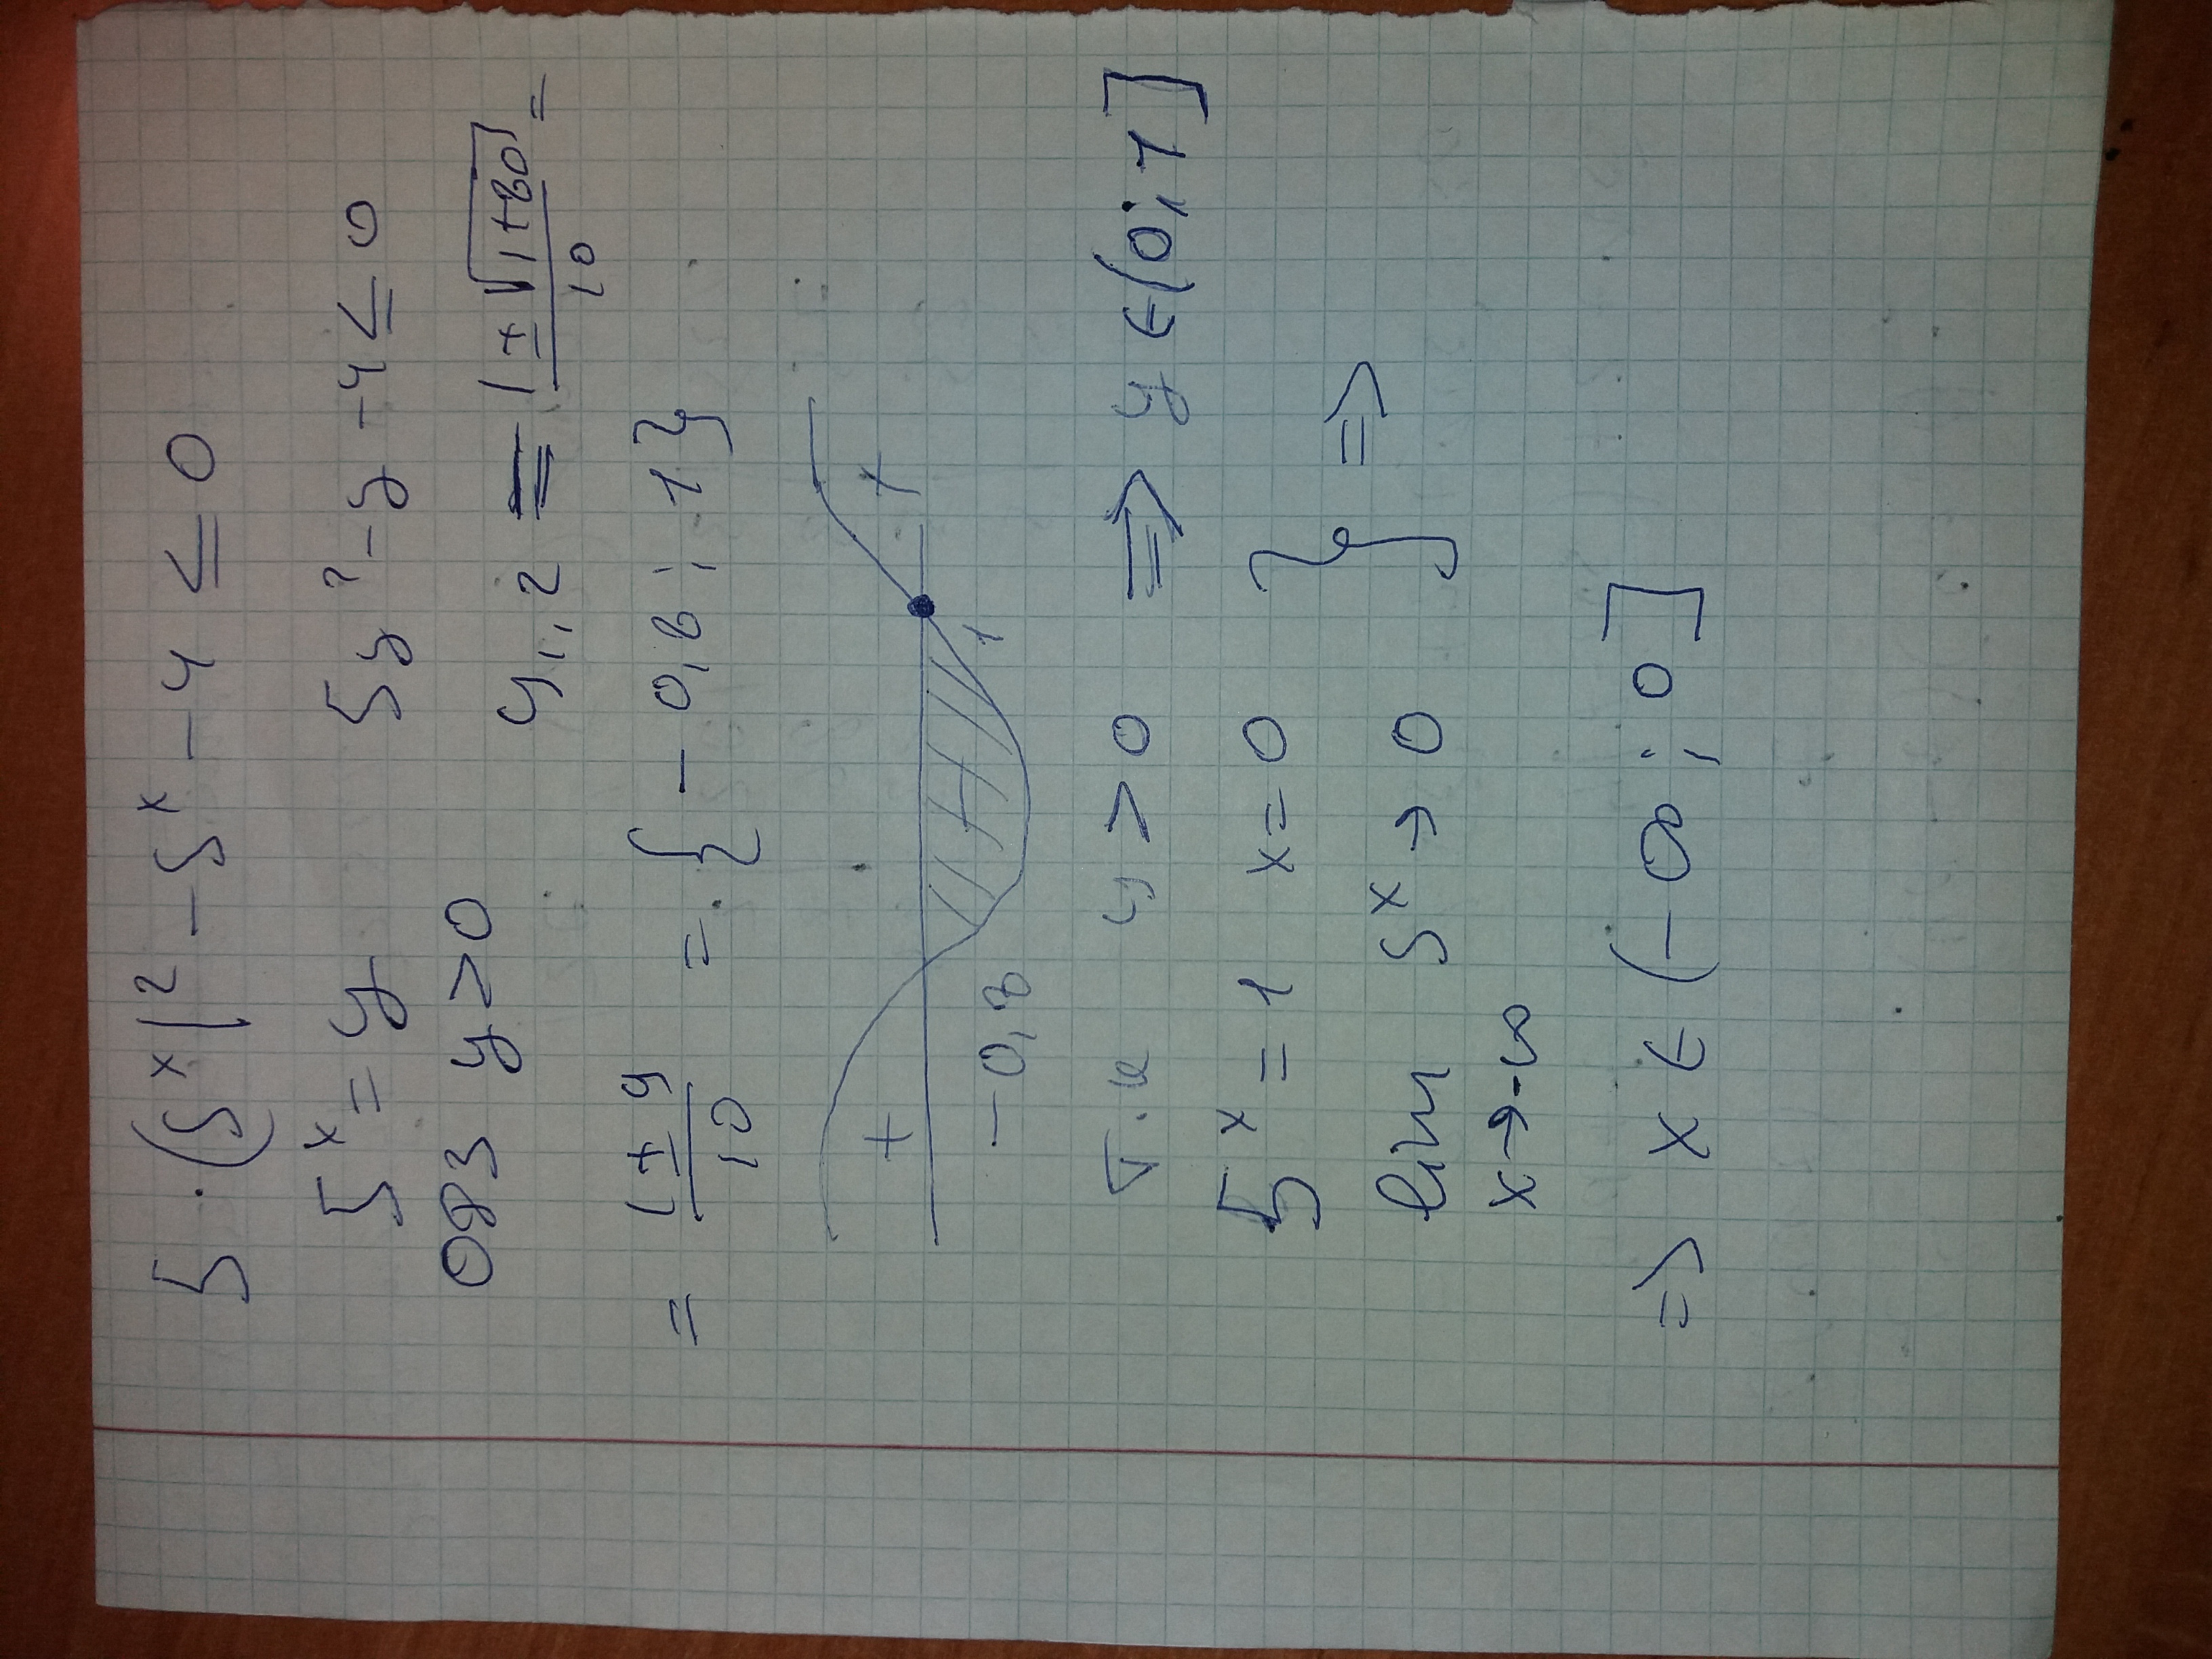 5·(5ˣ)² - 5ˣ - 4 ≤ 0
5ˣ = y 5y² - y - 4 ≤ 0
ОДЗ y > 0 y₁,₂ = (1 ± √(1+80))/10 =
= (1 ± 9)/10 = {-0,8 ; 1}
+ +
-0,8 1
Т.к y > 0 ⇒ y ∈ (0 ; 1]
5ˣ = 1 x = 0 } ⇒
lim 5ˣ → 0
x → -∞
⇒ x ∈ (-∞ ; 0]